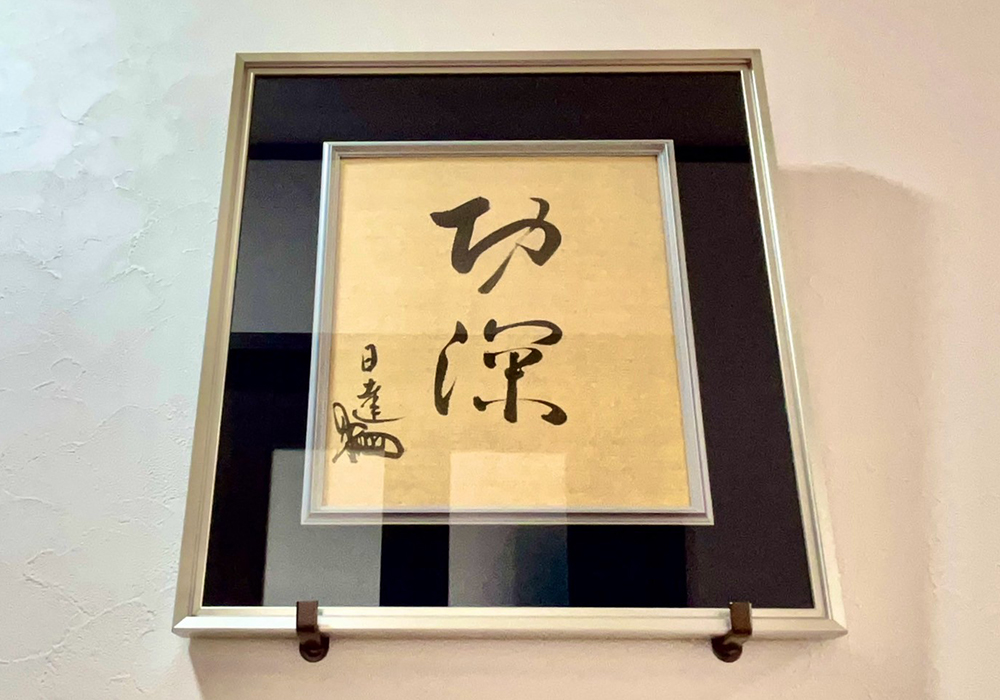 功深
日達